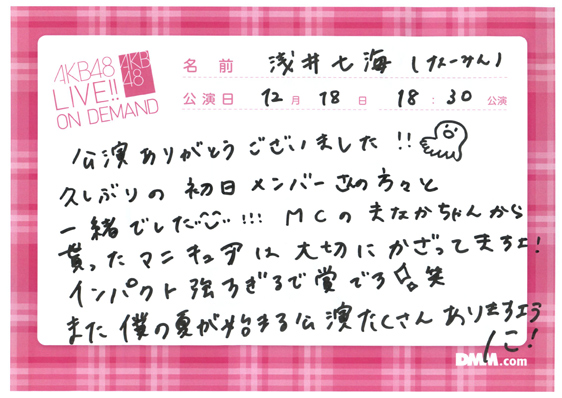 AKB48
LIVE!!
ON DEMAND
AKB
48
名前 浅井七海 (なーみん)
公演日 12月 18日 18:30 公演
公演ありがとうございました!!
久しぶりの初日メンバーさんの方々と
一緒でした!!! MCのまなかちゃんから
貰ったマニキュアは大切にかざってますェ!
インパクト強すぎるで賞です 笑
また僕の夏が始まる公演たくさんありますよう
に!
DMM.com